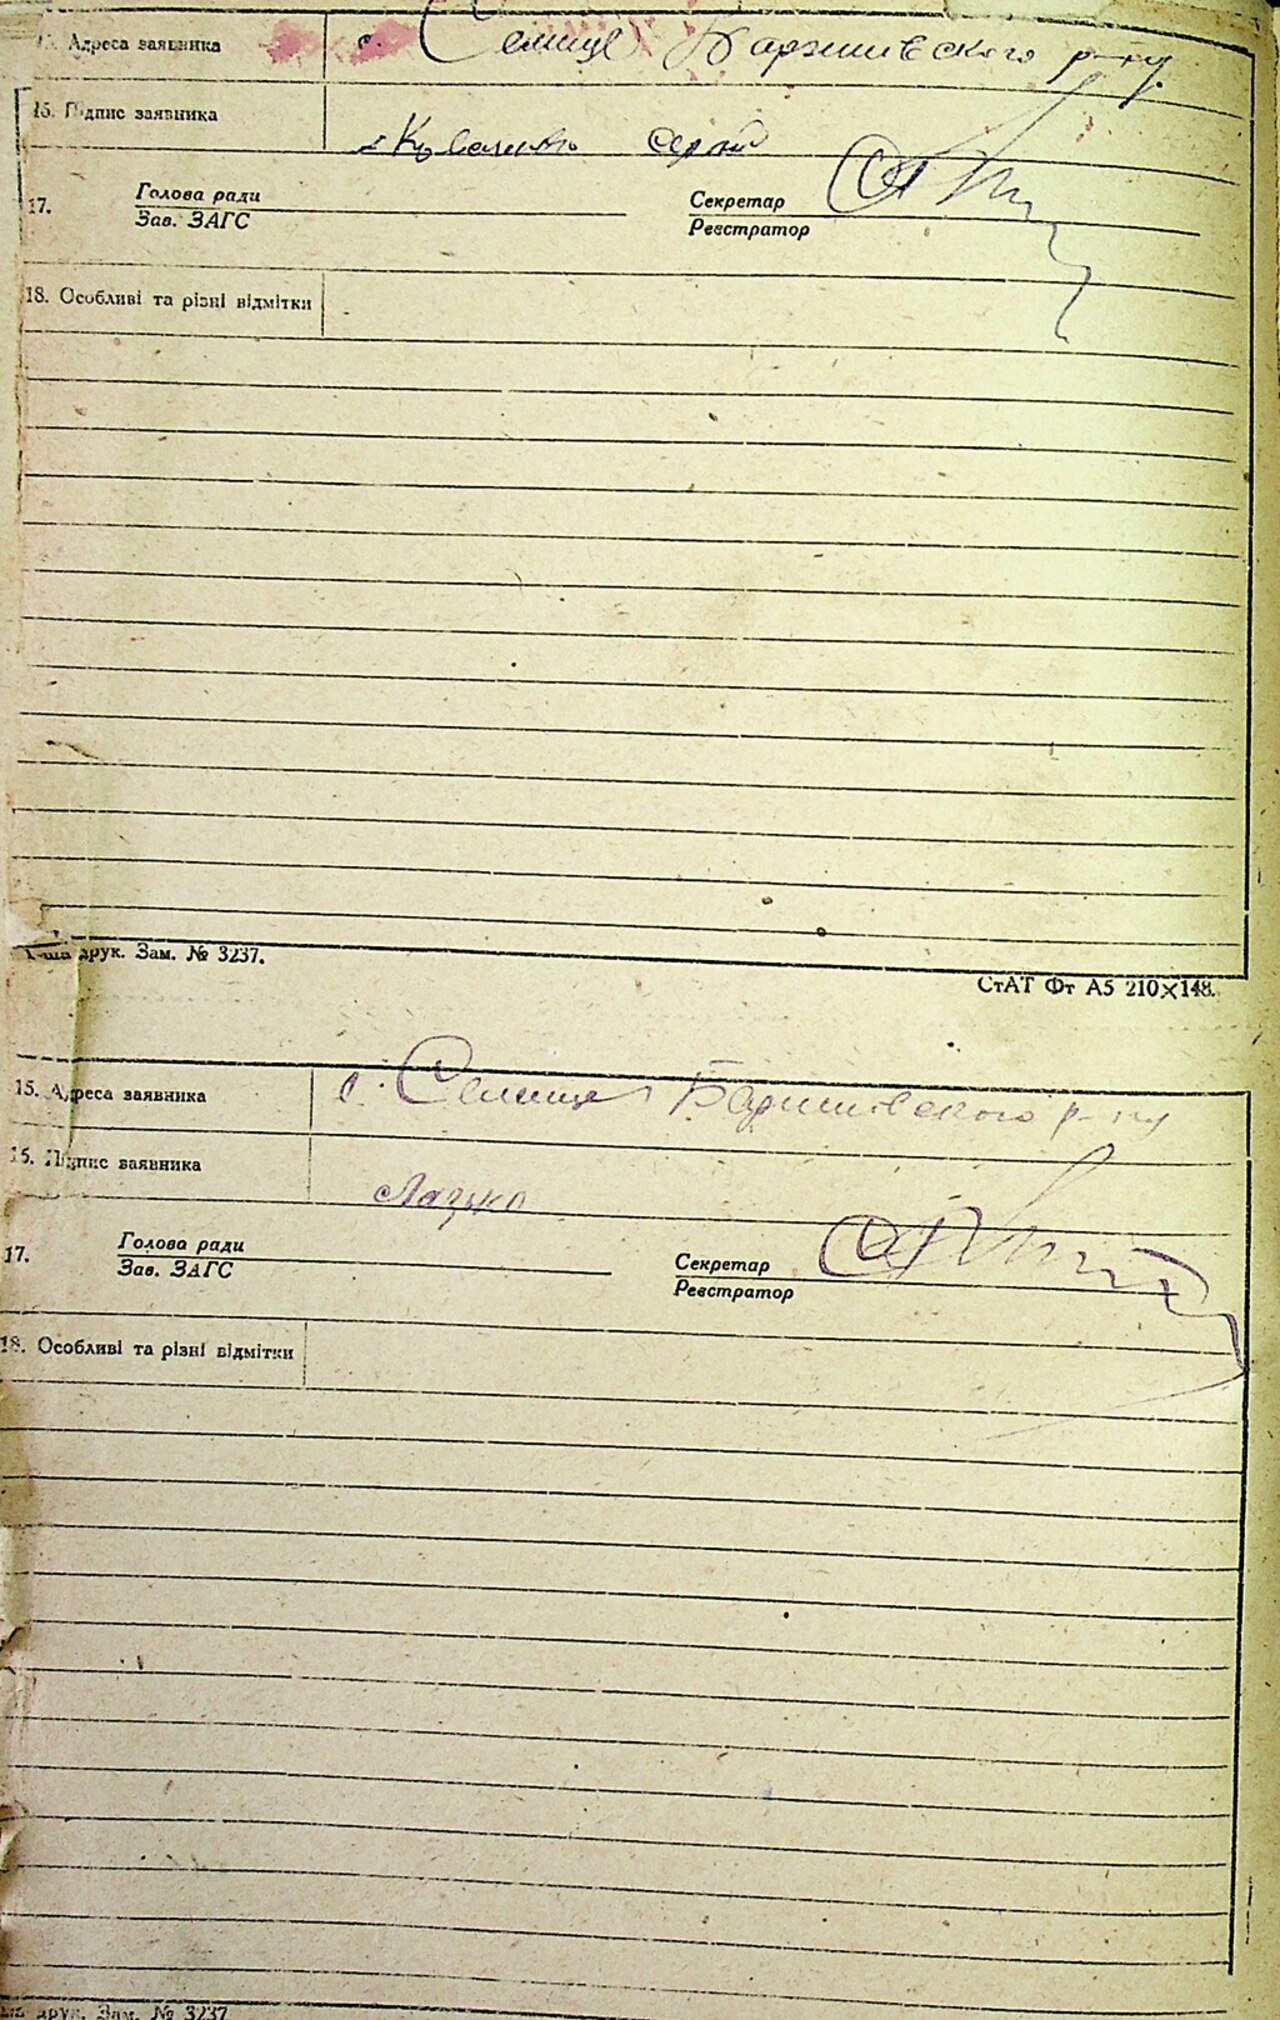 15. Адреса заявника с. Селище Баришівського р-ну
15. Підпис заявника
17. Голова ради Секретар
Зав. ЗАГС Реєстратор
18. Особливі та різні відмітки
друк. Зам. № 3237.
СтАТ Фт А5 210×148.
15. Адреса заявника с. Селище Баришівського р-ну
15. Підпис заявника Лазько
17. Голова ради Секретар
Зав. ЗАГС Реєстратор
18. Особливі та різні відмітки
друк. Зам. № 3237